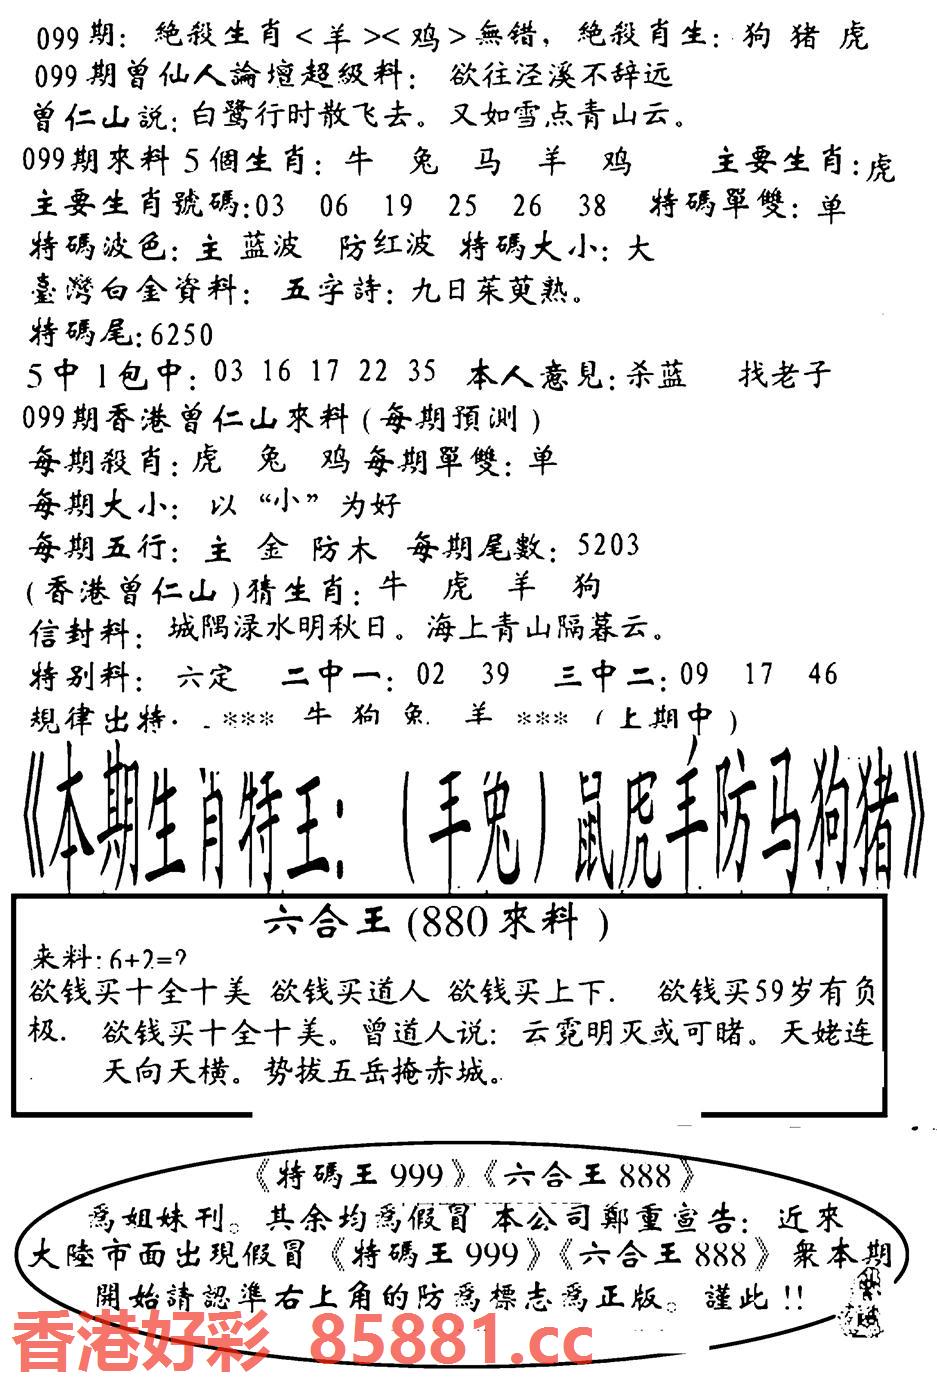 099期：絕殺生肖＜羊＞＜鸡＞無错，絕殺肖生：狗 猪 虎
099期曾仙人論壇超級料：欲往泾溪不辞远
曾仁山説：白鹭行时散飞去。又如雪点青山云。
099期來料5個生肖：牛 兔 马 羊 鸡 主要生肖：虎
主要生肖號碼：03 06 19 25 26 38 特碼單雙：单
特碼波色：主 蓝波 防红波 特碼大小：大
臺灣白金資料：五字詩：九日茱萸熟。
特碼尾：6250
5中1包中：03 16 17 22 35 本人意見：杀蓝 找老子
099期香港曾仁山來料（每期預測）
每期殺肖：虎 兔 鸡 每期單雙：单
每期大小：以“小”为好
每期五行：主 金 防木 每期尾數：5203
（香港曾仁山）猜生肖：牛 虎 羊 狗
信封料：城隅渌水明秋日。海上青山隔暮云。
特别料：六定 二中一：02 39 三中二：09 17 46
規律出特： *** 牛 狗 兔 羊 ***（上期中）
《本期生肖特王：（羊兔）鼠虎羊防马狗猪》
六合王(880來料)
来料：6+2=?
欲钱买十全十美 欲钱买道人 欲钱买上下. 欲钱买59岁有负
极. 欲钱买十全十美。曾道人说：云霓明灭或可睹。天姥连
天向天横。势拔五岳掩赤城。
《特碼王999》《六合王888》
爲姐妹刊。其余均爲假冒 本公司鄭重宣告：近來
大陸市面出現假冒《特碼王999》《六合王888》衆本期
開始請認準右上角的防爲標志爲正版。謹此!!
香港好彩 85881.cc